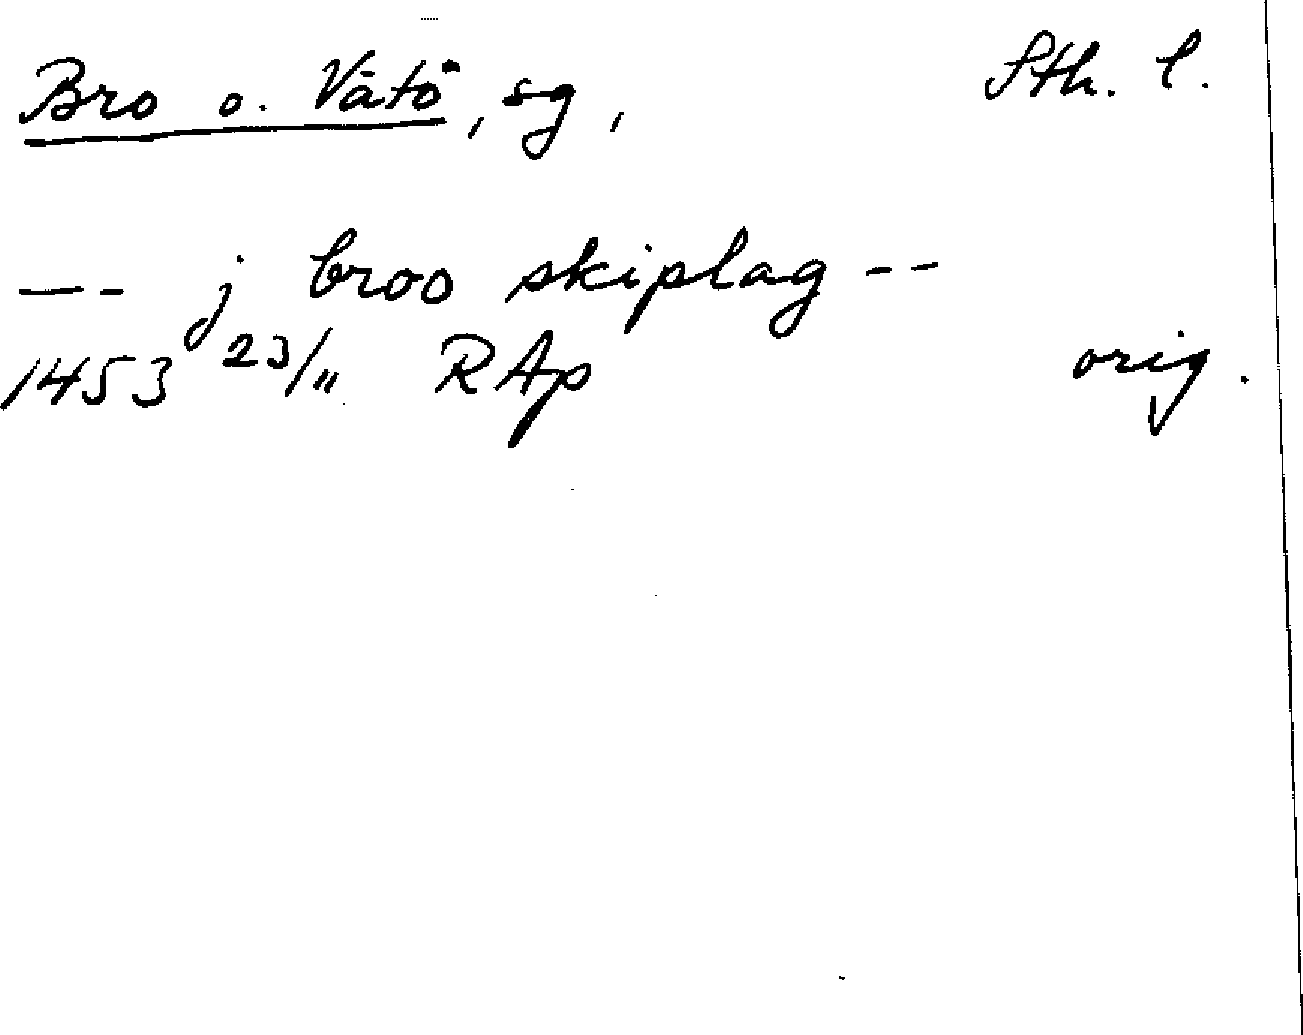 Bro o. Vätö, sg, Sth. l.
--- j broo skiplag --
1453 23/11 RAp orig.